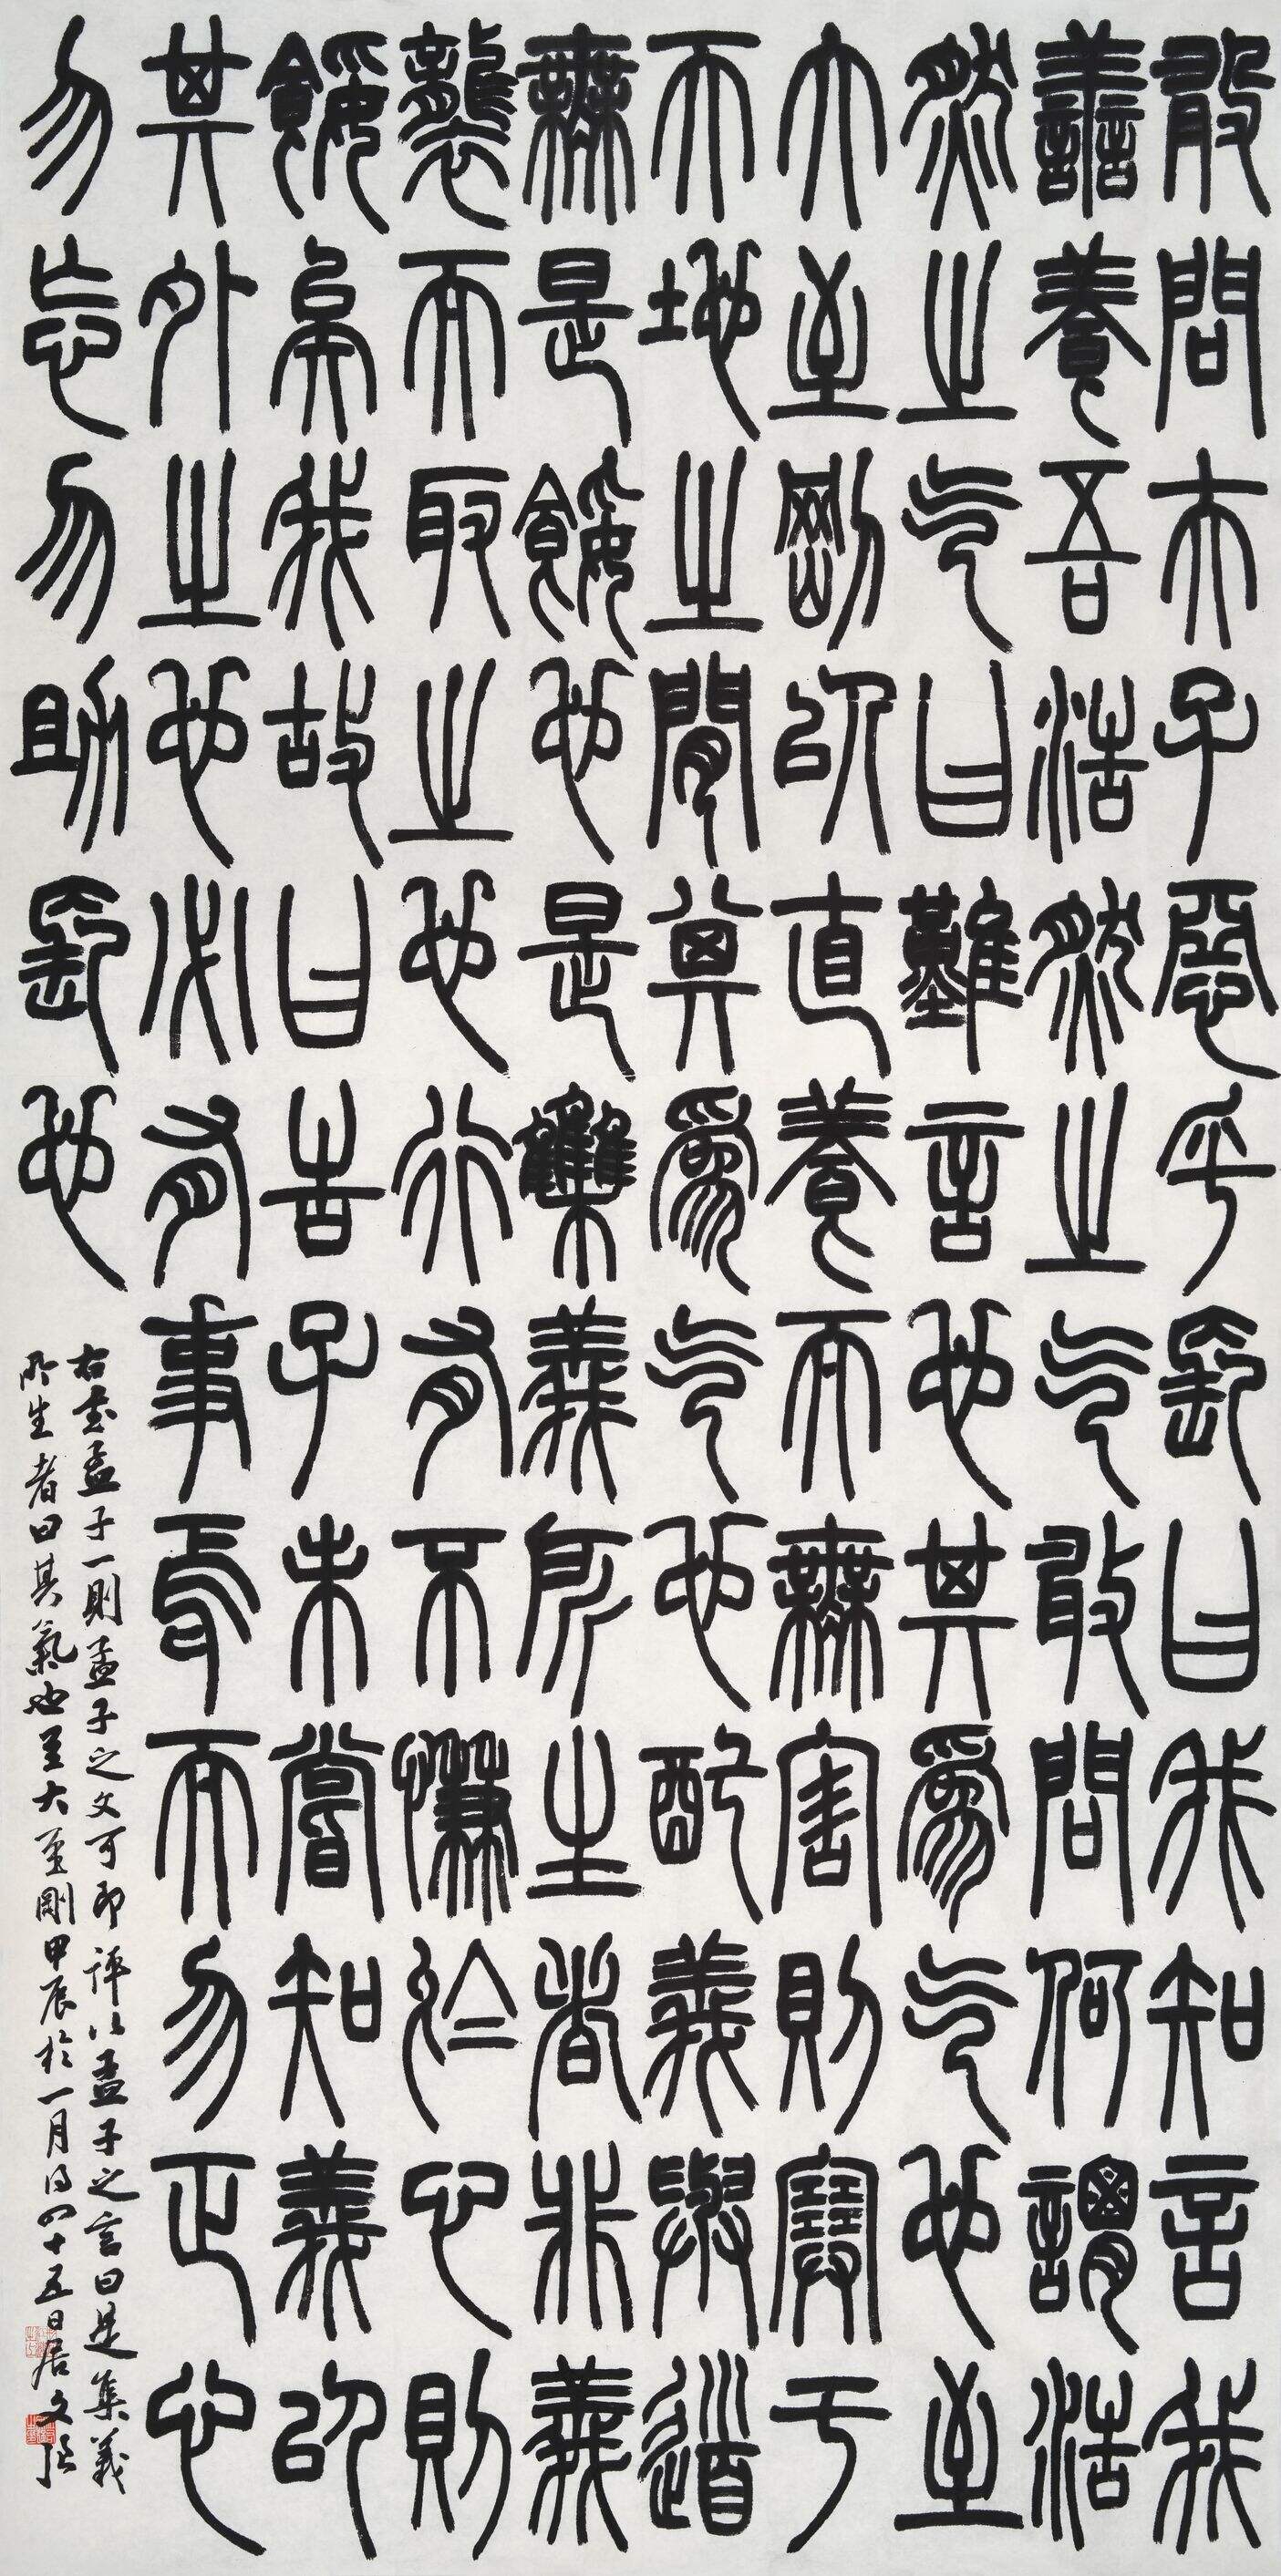 敢問夫子惡乎長曰我知言我
善養吾浩然之气敢問何謂浩
然之气曰難言也其爲气也至
大至剛以直養而無害則塞于
天地之閒其爲气也配義與道
無是餒也是集義所生者非義
襲而取之也行有不慊於心則
餒矣我故曰告子未嘗知義以
其外之也必有事焉而勿正心
勿忘勿助長也
右書孟子一則孟子之文可即評以孟子之言曰是集義
所生者曰其氣也至大至剛甲辰於一月四十五日居文